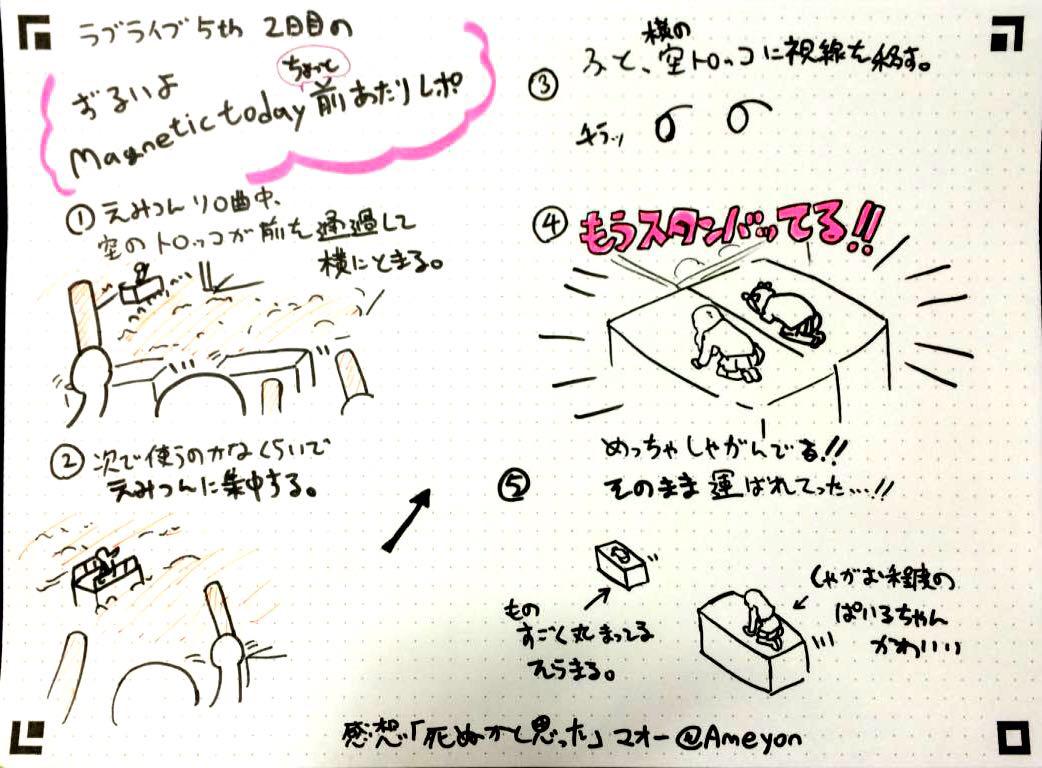 ラブライブ5th 2日目の
ずるいよ
Magnetic today ちょっと前あたりレポ
① えみつんソロ曲中、
空のトロッコが前を通過して
横にとまる。
② 次で使うのかなくらいで
えみつんに集中する。
③ ふと、横の空トロッコに視線を移す。
チラッ
④ もうスタンバッてる!!
めっちゃしゃがんでる!!
⑤ そのまま運ばれてった…!!
もの
すごく丸まってる
しゃがむ程度の
ぱいるちゃん
かわいい
感想「死ぬかと思った」マオー@Ameyon